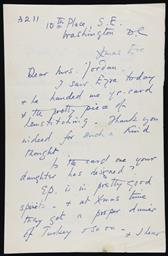 3211
10th Place, S.E.
Washington DC
Xmas Eve
Dear Mrs. Jordan.
I saw Ezra today
& he handed me yr. card
& the pretty piece of
hemstitching. Thank you
indeed for such a kind
thought.
Is the card one your
daughter has designed?
E.P. is in pretty good
spirits - & at Xmas time
they get a proper dinner
of Turkey & so on - & I hear